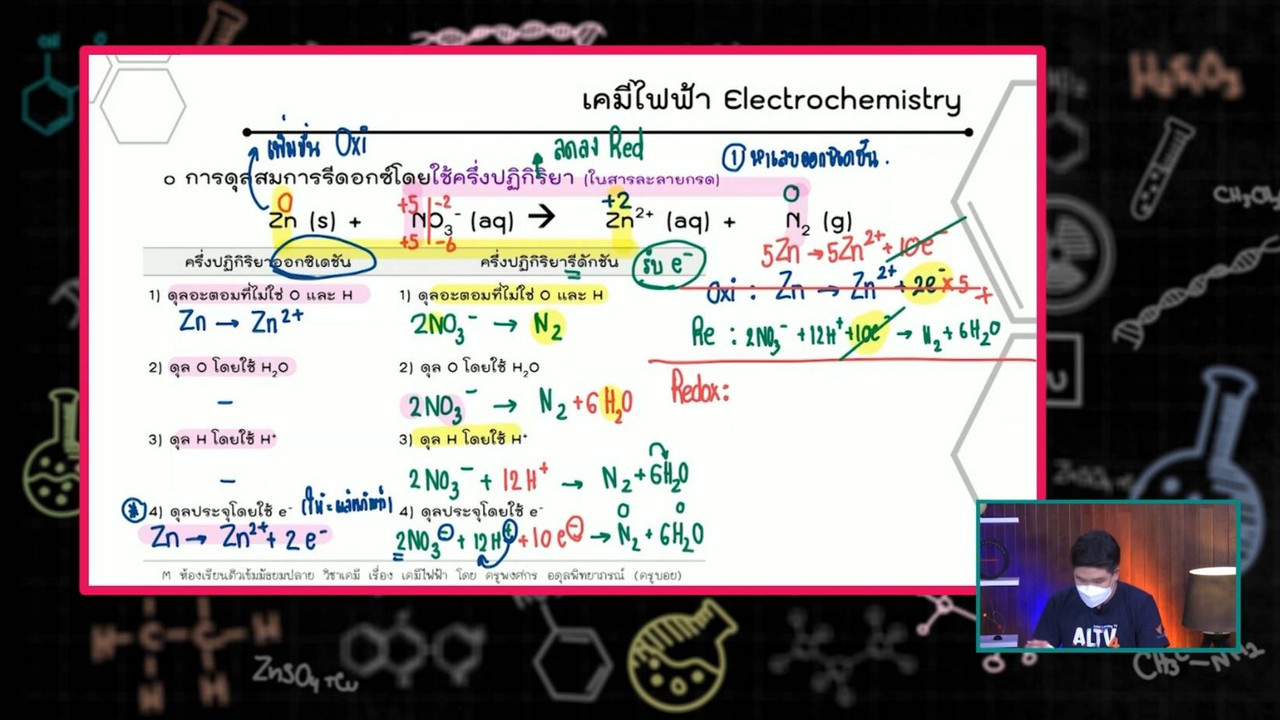 เคมีไฟฟ้า Electrochemistry
เพิ่มขึ้น Oxi
ลดลง Red
① หาเลขออกซิเดชัน.
o การดุลสมการรีดอกซ์โดยใช้ครึ่งปฏิกิริยา (ในสารละลายกรด)
0 +5 -2 +2 0
Zn (s) + NO₃⁻ (aq) → Zn²⁺ (aq) + N₂ (g)
+5 -6
ครึ่งปฏิกิริยาออกซิเดชัน
ครึ่งปฏิกิริยารีดักชัน
รับ e⁻
1) ดุลอะตอมที่ไม่ใช่ O และ H
Zn → Zn²⁺
2) ดุล O โดยใช้ H₂O
-
3) ดุล H โดยใช้ H⁺
-
4) ดุลประจุโดยใช้ e⁻
Zn → Zn²⁺ + 2e⁻
1) ดุลอะตอมที่ไม่ใช่ O และ H
2NO₃⁻ → N₂
2) ดุล O โดยใช้ H₂O
2NO₃⁻ → N₂ + 6H₂O
3) ดุล H โดยใช้ H⁺
2NO₃⁻ + 12H⁺ → N₂ + 6H₂O
4) ดุลประจุโดยใช้ e⁻
0 0
2NO₃⁻ + 12H⁺ + 10e⁻ → N₂ + 6H₂O
5Zn → 5Zn²⁺ + 10e⁻
Oxi : Zn → Zn²⁺ + 2e⁻ ×5 +
Re : 2NO₃⁻ + 12H⁺ + 10e⁻ → N₂ + 6H₂O
Redox:
M ห้องเรียนติวเข้มมัธยมปลาย วิชาเคมี เรื่อง เคมีไฟฟ้า โดย ครูพงศกร อดุลพิทยาภรณ์ (ครูบอย)
H₂SO₃
ZnSO₄
ALTV